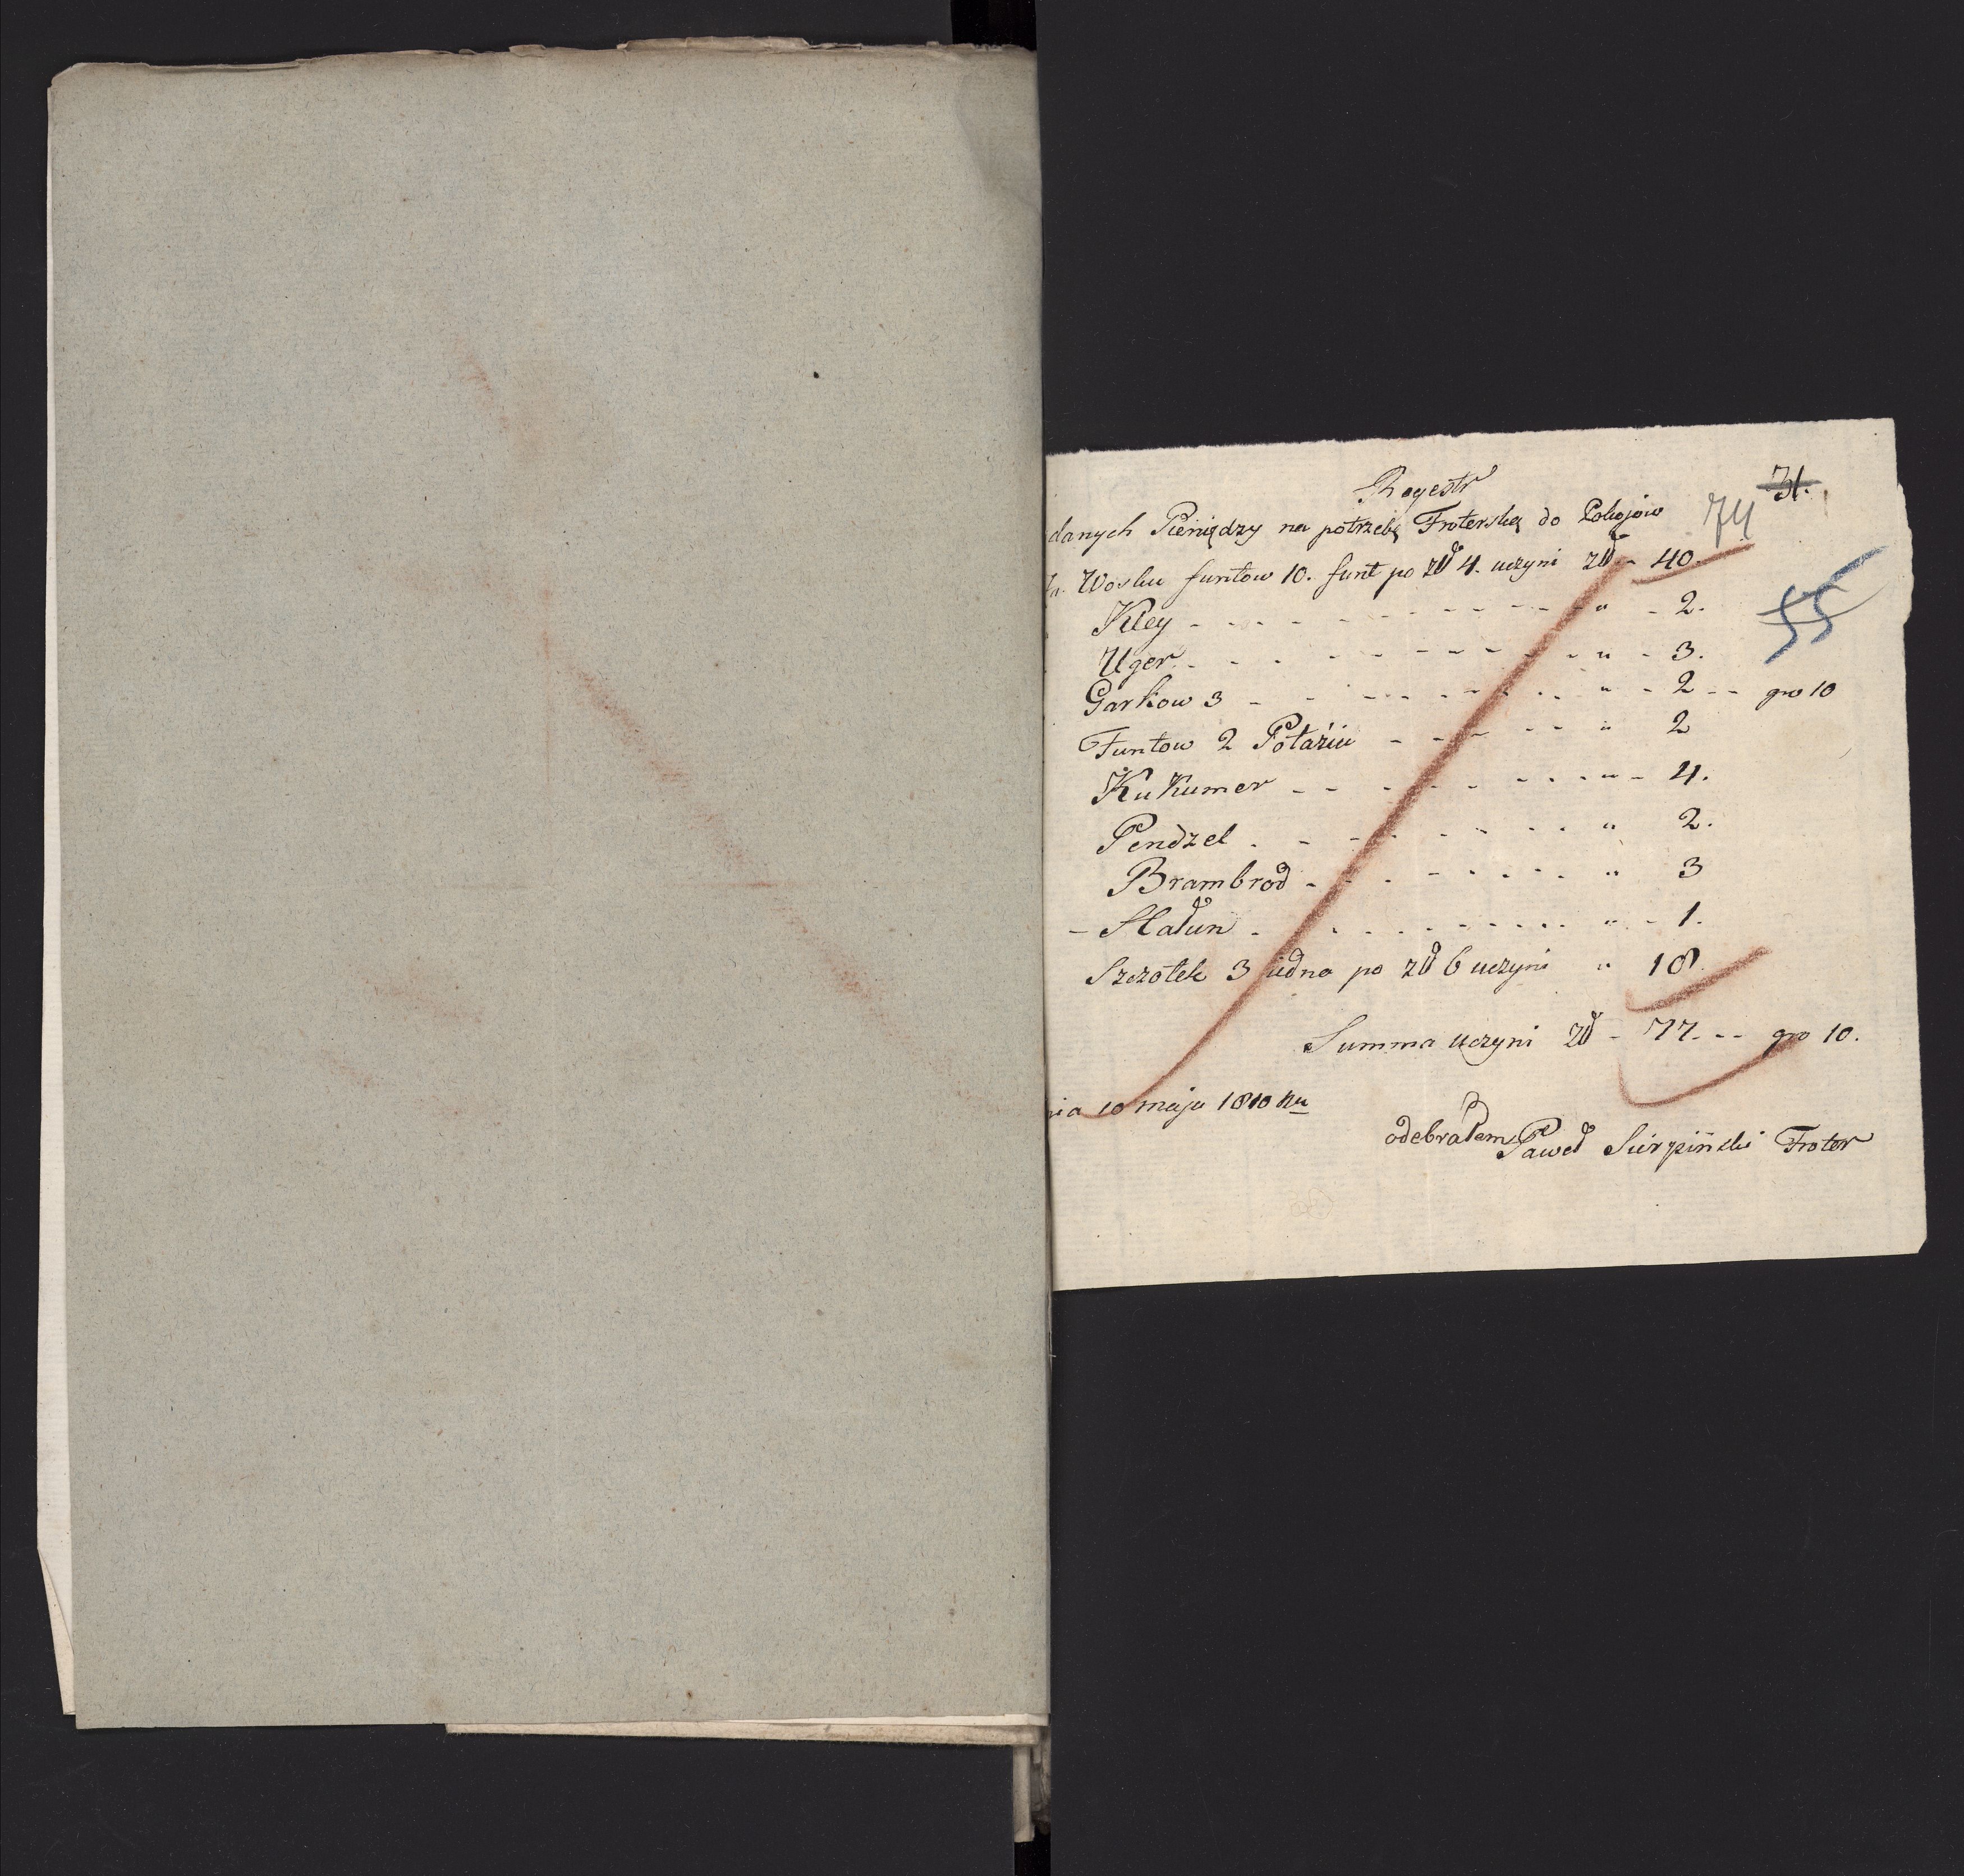 Regestr
31.
danych Pieniędzy na potrzebę Froterską do Pokojow
74
Wosku funtow 10. funt po zł 4. uczyni zł - 40.
55
Kley - - - - - - - - - - " - 2.
Uger - - - - - - - - - - " - 3.
Garkow 3 - - - - - - - - " - 2 - - gro 10
Funtow 2 Potażiu - - - - - " 2
Kukumer - - - - - - - - " - 4.
Pendzel - - - - - - - - " 2.
Brambrod - - - - - - - - " 3
- Hałun - - - - - - - - - " - 1.
Szczotek 3 iedna po zł 6 uczyni " 18
Summa uczyni zł - 77. - - gro 10.
nia 10 maja 1810 Ru
odebrałem Paweł Sierpiński Froter